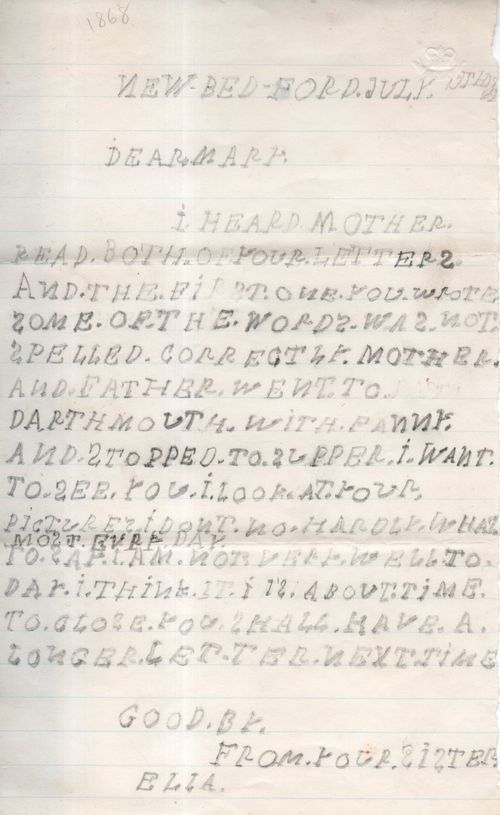 1868
NEW-BED-FORD.JULY.
DEAR.MARY.
I HEARD.MOTHER.
READ.BOTH.OF.YOUR.LETTERS
AND.THE.FIRST.ONE.YOU.WROTE
SOME.OF.THE.WORDS.WAS.NOT
SPELLED.CORRECTLY.MOTHER.
AND.FATHER.WENT.TO.
DARTHMOUTH.WITH.FANNY.
AND.STOPPED.TO.SUPPER.I.WANT.
TO.SEE.YOU.I.LOOK.AT.YOUR.
PICTURES.I.DONT.NO.HARDLY.WHAT
MOST.EVERY DAY.
TO.SAY.I.AM.NOT.VERY.WELL.TO.
DAY.I.THINK.IT.I IS.ABOUT.TIME.
TO.CLOSE.YOU.SHALL.HAVE.A.
LONGER.LET-TER.NEXT.TIME
GOOD.BY.
FROM.YOUR.SISTER
ELLA.